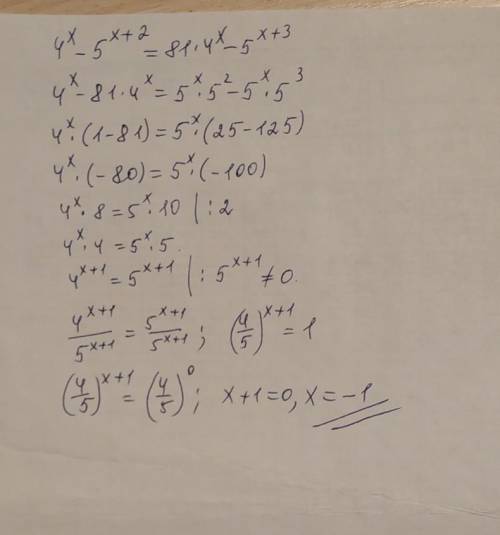 4^x - 5^{x+2} = 81·4^x - 5^{x+3}
4^x - 81·4^x = 5^x·5^2 - 5^x·5^3
4^x·(1-81) = 5^x·(25-125)
4^x·(-80) = 5^x·(-100)
4^x·8 = 5^x·10 | :2
4^x·4 = 5^x·5.
4^{x+1} = 5^{x+1} | : 5^{x+1} ≠ 0.
\frac{4^{x+1}}{5^{x+1}} = \frac{5^{x+1}}{5^{x+1}} ; (\frac{4}{5})^{x+1} = 1
(\frac{4}{5})^{x+1} = (\frac{4}{5})^0 ; x+1=0, x=-1